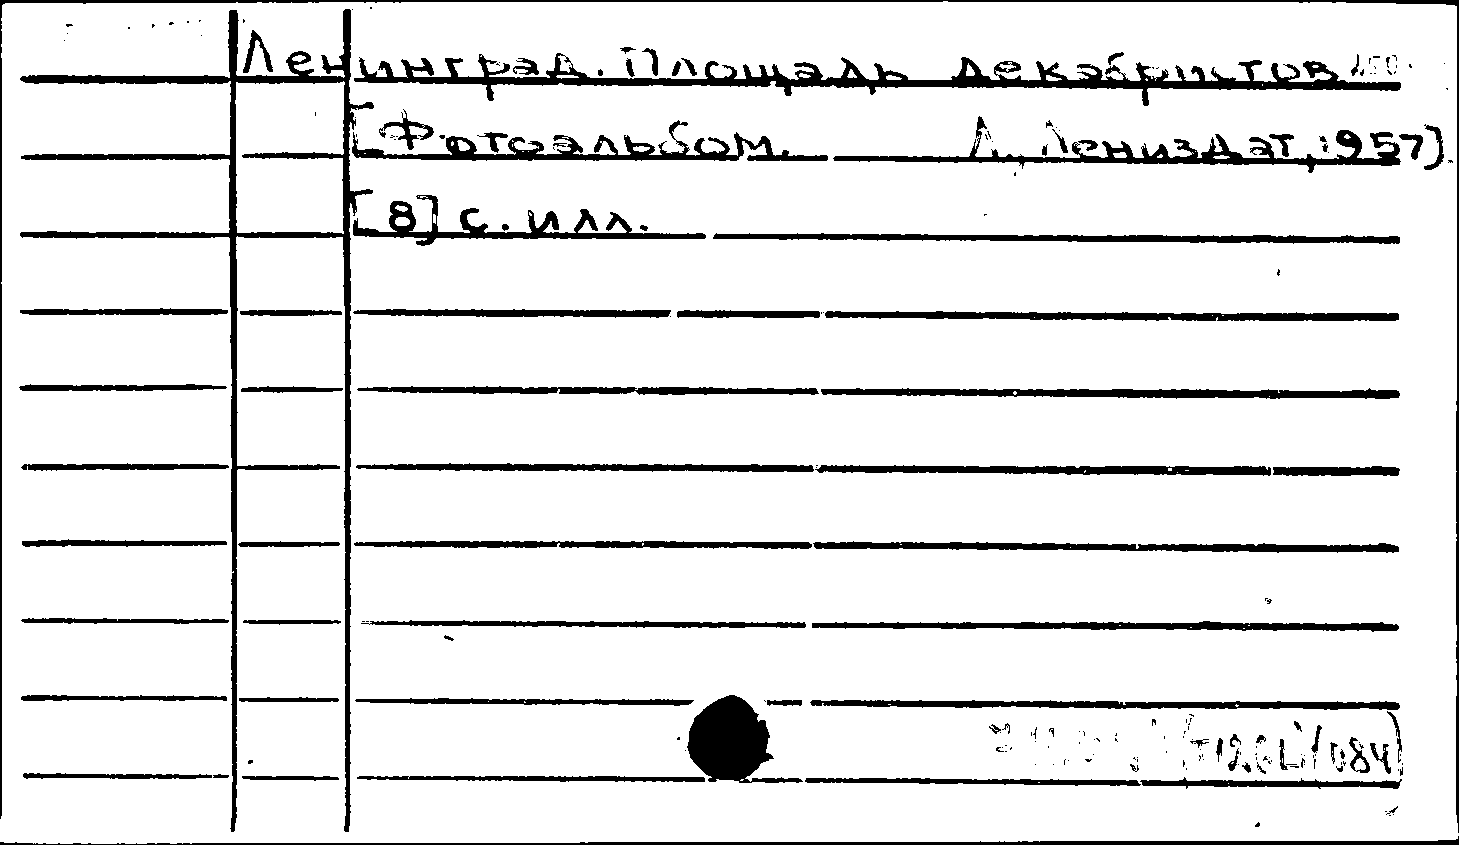 Ленинград. Площадь декабристов
[Фотоальбом. Л., Лениздат, 1957]
[8] с. илл.